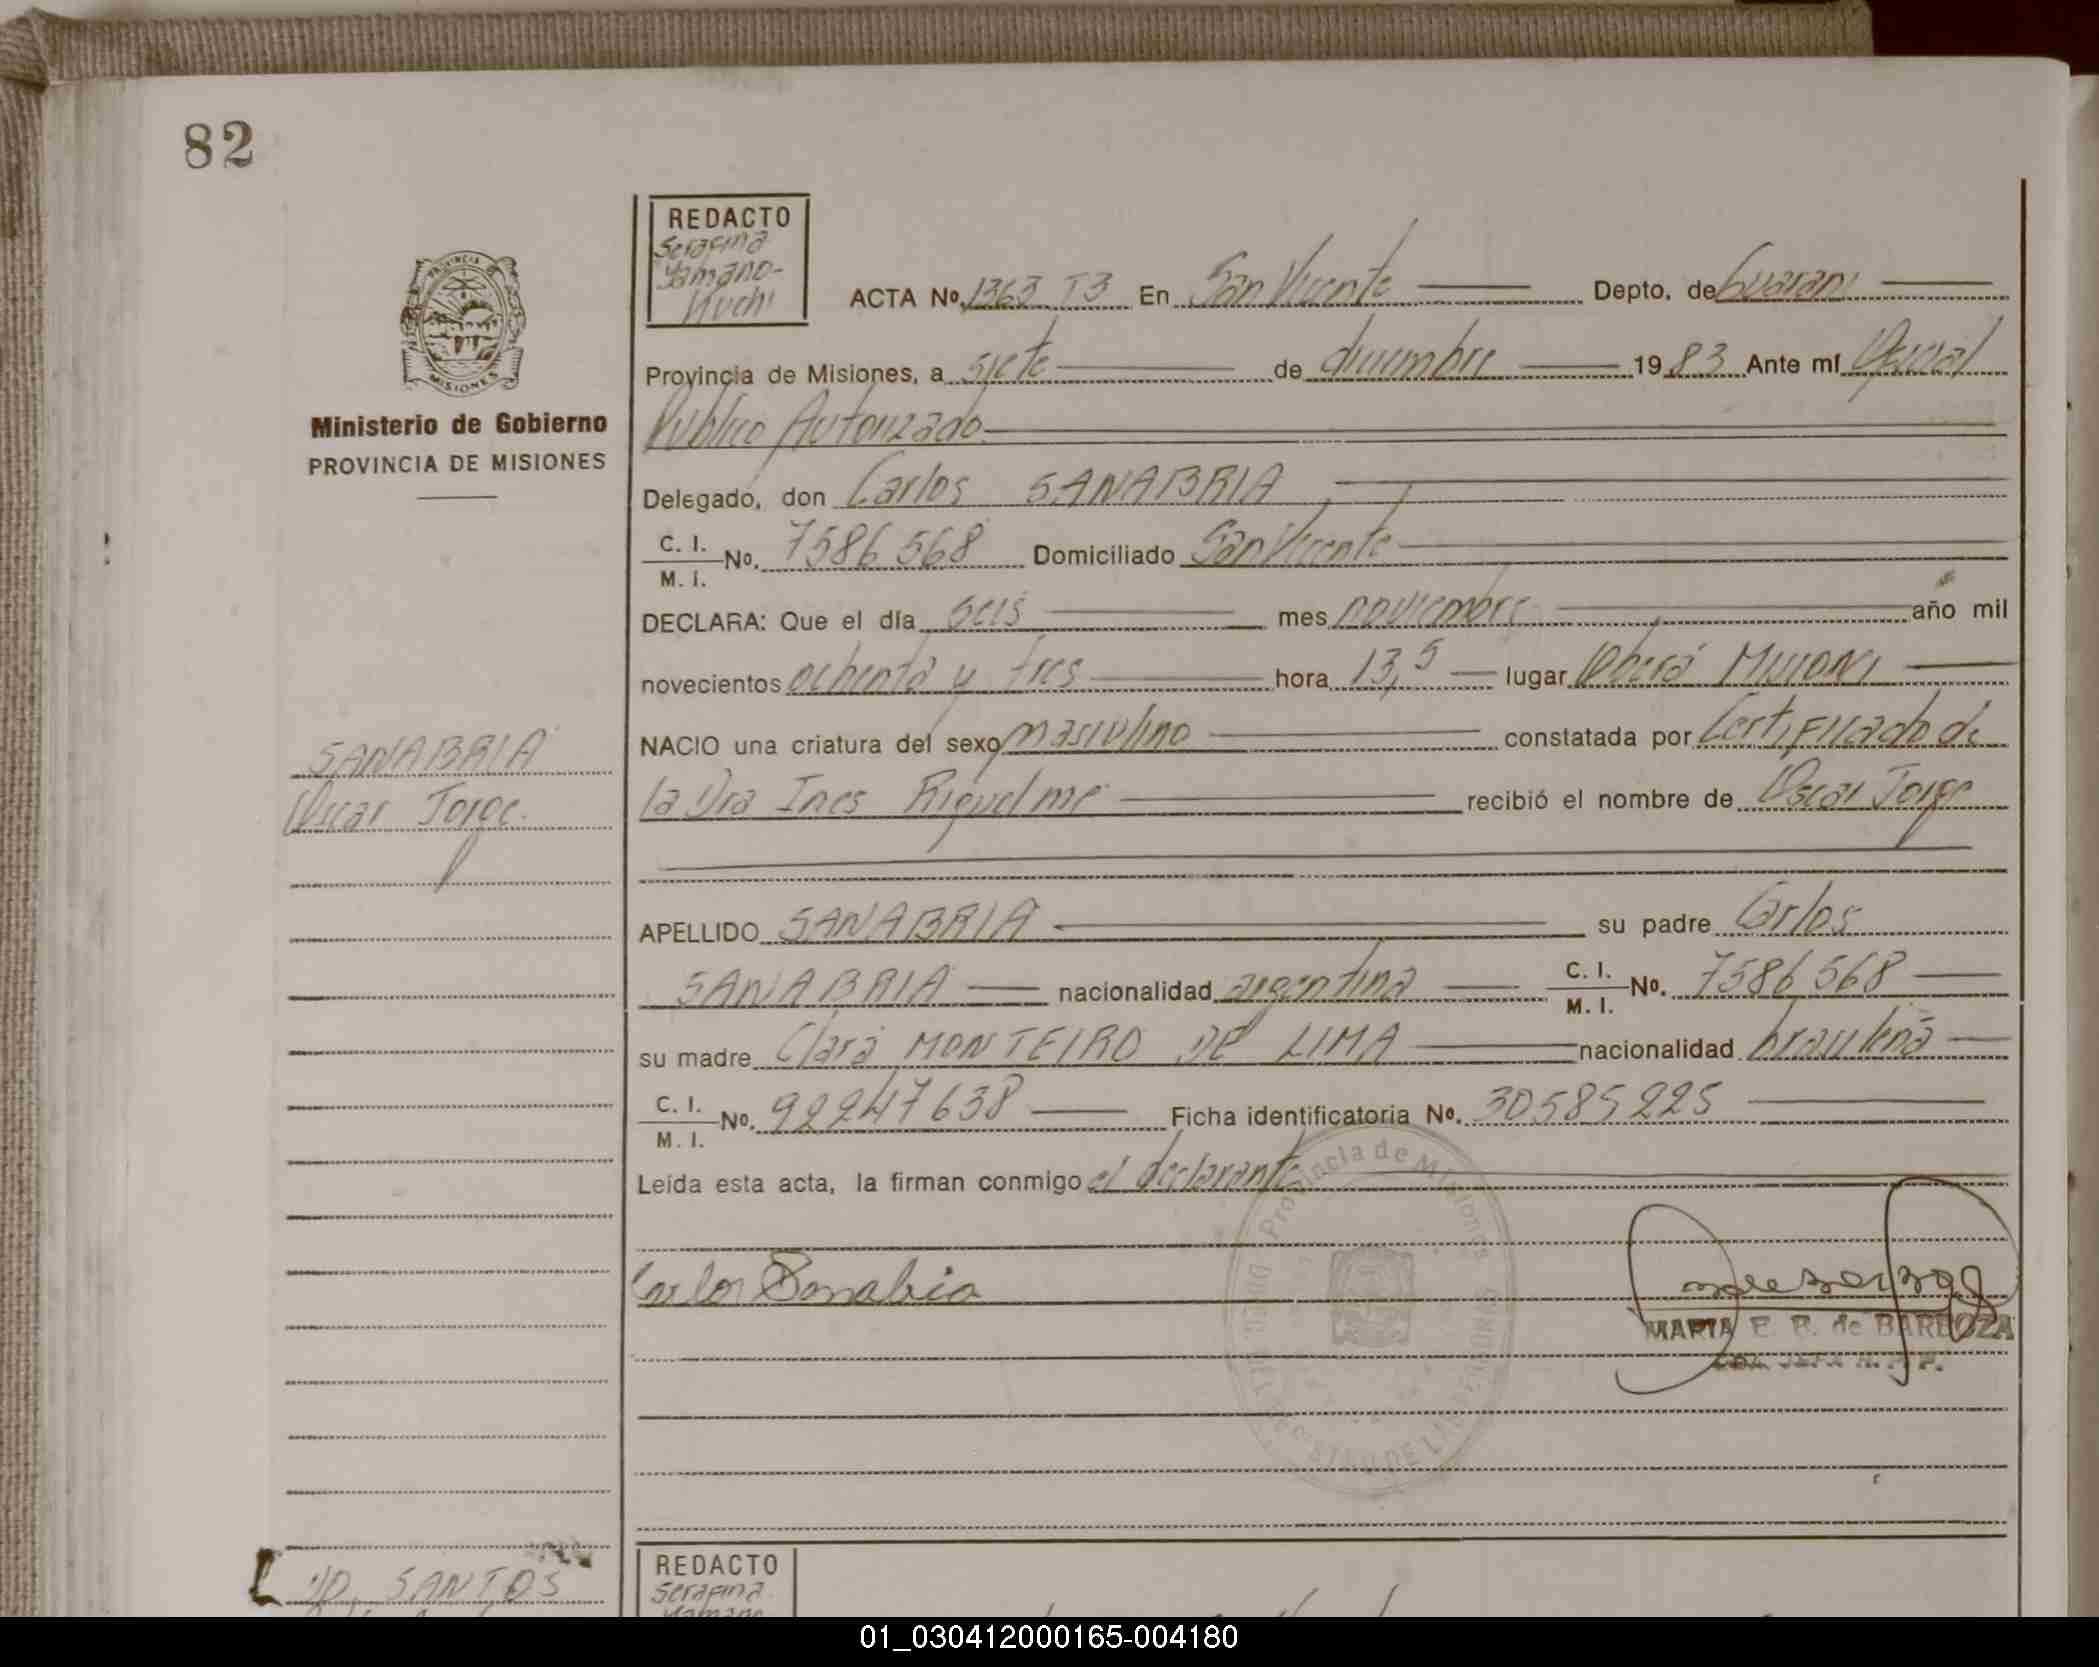 82
REDACTO
Serafina
Yamano-
Kuchi
ACTA No. 1363 T3 En San Vicente Depto. de Guarani
Provincia de Misiones, a siete de diciembre 1983 Ante mí Oficial
Público Autorizado
Delegado, don Carlos SANABRIA
C. I. / M. I. No. 7586568 Domiciliado San Vicente
DECLARA: Que el día seis mes noviembre año mil
novecientos ochenta y tres hora 13,5 lugar Oberá Misiones
NACIO una criatura del sexo masculino constatada por Certificado de
la Dra Ines Riquelme recibió el nombre de Oscar Jorge
APELLIDO SANABRIA su padre Carlos
SANABRIA nacionalidad argentina C. I. / M. I. No. 7586568
su madre Clara MONTEIRO DE LIMA nacionalidad brasileña
C. I. / M. I. No. 92247638 Ficha identificatoria No. 30585225
Leída esta acta, la firman conmigo el declarante
Carlos Sanabria
MARIA E. B. de BARBOZA
Provincia de Misiones
PROVINCIA DE
MISIONES
Ministerio de Gobierno
PROVINCIA DE MISIONES
SANABRIA
Oscar Jorge.
SANTOS
REDACTO
Serafina
Yamano
01_030412000165-004180